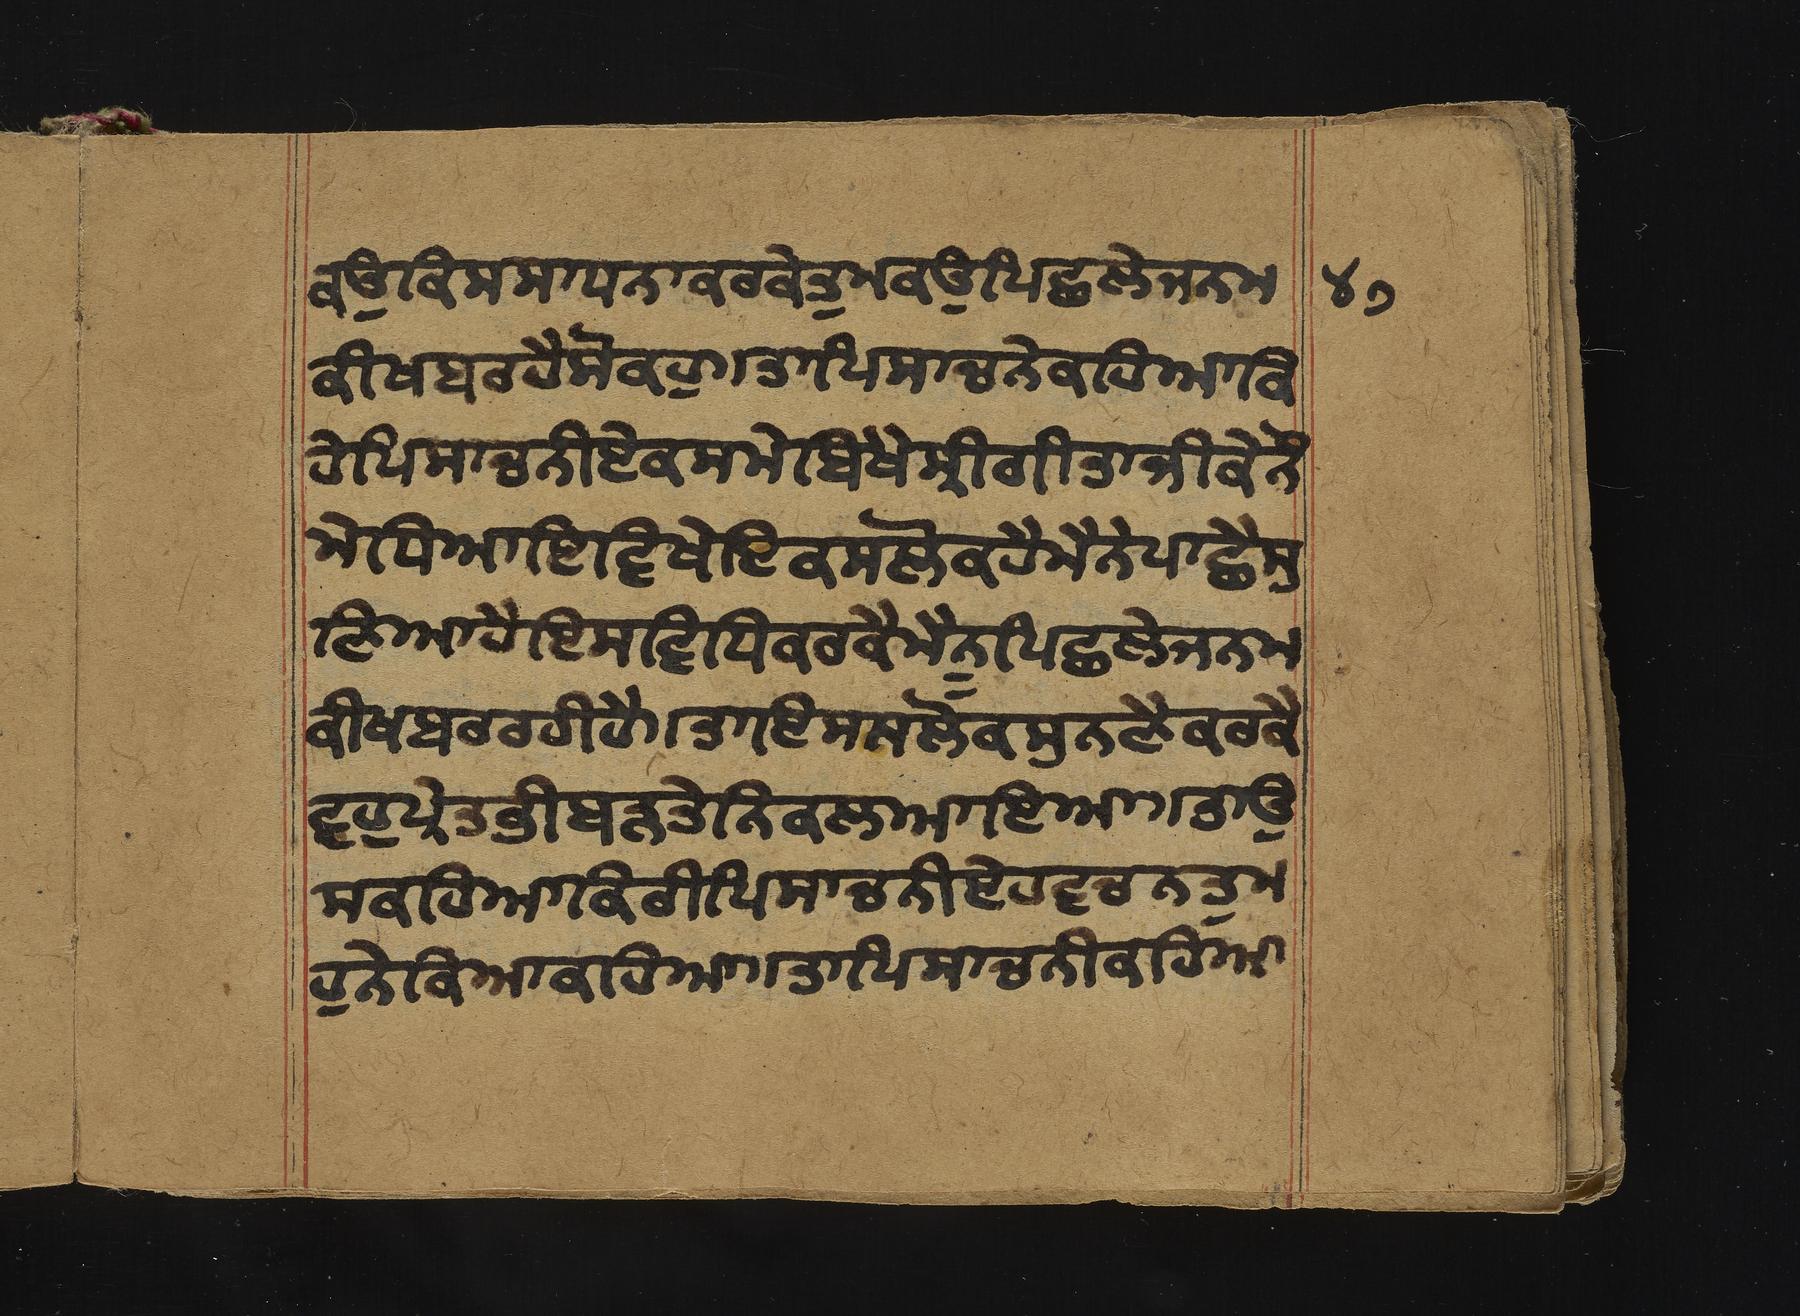 ਕਉਕਿਸਸਾਧਨਾਕਰਕੇਤੁਮਕਉਪਿਛਲੇਜਨਮ ੪੭
ਕੀਖਬਰਹੈਸੋਕਹੁ।ਤਾਪਿਸਾਚਨੇਕਹਿਆਕਿ
ਹੇਪਿਸਾਚਨੀਏਕਸਮੇਬਿਖੇਸ੍ਰੀਗੀਤਾਜੀਕੇਨੌ
ਮੇਧਿਆਇਵਿਖੇਇਕਸਲੋਕਹੈਮੈਨੇਪਾਛੈਸੁ
ਣਿਆਹੈਇਸਵਿਧਿਕਰਕੈਮੈਨੂਪਿਛਲੇਜਨਮ
ਕੀਖਬਰਰਹੀਹੈ।ਤਾਇਸਸਲੋਕਸੁਨਣੈਕਰਕੈ
ਵ੍ਹੁਪ੍ਰੇਤਭੀਬੜਤੇਨਿਕਲਆਇਆ।ਤਾਉ
ਸਕਹਿਆਕਿਰੀਪਿਸਾਚਨੀਏਹਵਚਨਤੁਮ
ਹੁਨੇਕਿਆਕਹਿਆ।ਤਾਪਿਸਾਚਨੀਕਹਿਆ